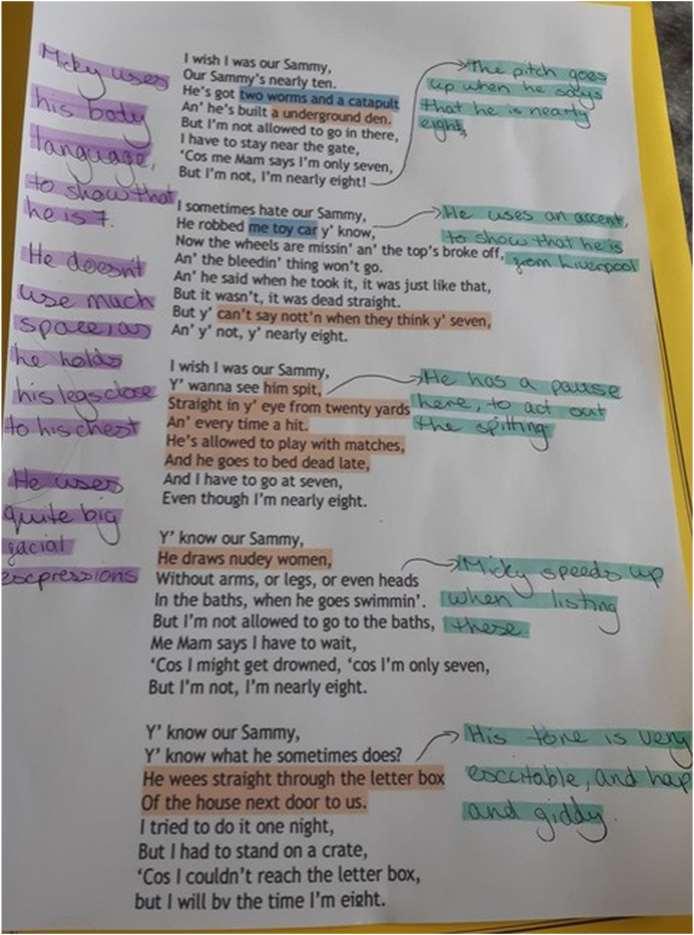 Micky uses
his body
language,
to show that
he is 7.
He doesn't
use much
space, as
he holds
his legs close
to his chest
He uses
quite big
facial
expressions
I wish I was our Sammy,
Our Sammy's nearly ten.
He's got two worms and a catapult
An' he's built a underground den.
But I'm not allowed to go in there,
I have to stay near the gate,
'Cos me Mam says I'm only seven,
But I'm not, I'm nearly eight!
The pitch goes
up when he says
that he is nearly
eight,
I sometimes hate our Sammy,
He robbed me toy car y' know,
Now the wheels are missin' an' the top's broke off,
An' the bleedin' thing won't go.
An' he said when he took it, it was just like that,
But it wasn't, it was dead straight.
But y' can't say nott'n when they think y' seven,
An' y' not, y' nearly eight.
He uses an accent,
to show that he is
from Liverpool
I wish I was our Sammy,
Y' wanna see him spit,
Straight in y' eye from twenty yards
An' every time a hit.
He's allowed to play with matches,
And he goes to bed dead late,
And I have to go at seven,
Even though I'm nearly eight.
He has a pause
here, to act out
the spitting
Y' know our Sammy,
He draws nudey women,
Without arms, or legs, or even heads
In the baths, when he goes swimmin'.
But I'm not allowed to go to the baths,
Me Mam says I have to wait,
'Cos I might get drowned, 'cos I'm only seven,
But I'm not, I'm nearly eight.
Micky speeds up
when listing
these.
Y' know our Sammy,
Y' know what he sometimes does?
He wees straight through the letter box
Of the house next door to us.
I tried to do it one night,
But I had to stand on a crate,
'Cos I couldn't reach the letter box,
but I will by the time I'm eight.
His tone is very
excitable, and hap
and giddy.